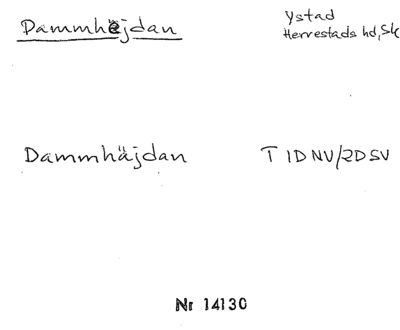 Dammhejdan
Ystad
Herrestads hd, Sk
Dammhäjdan
T 1D NV/2D SV
Nr 14130